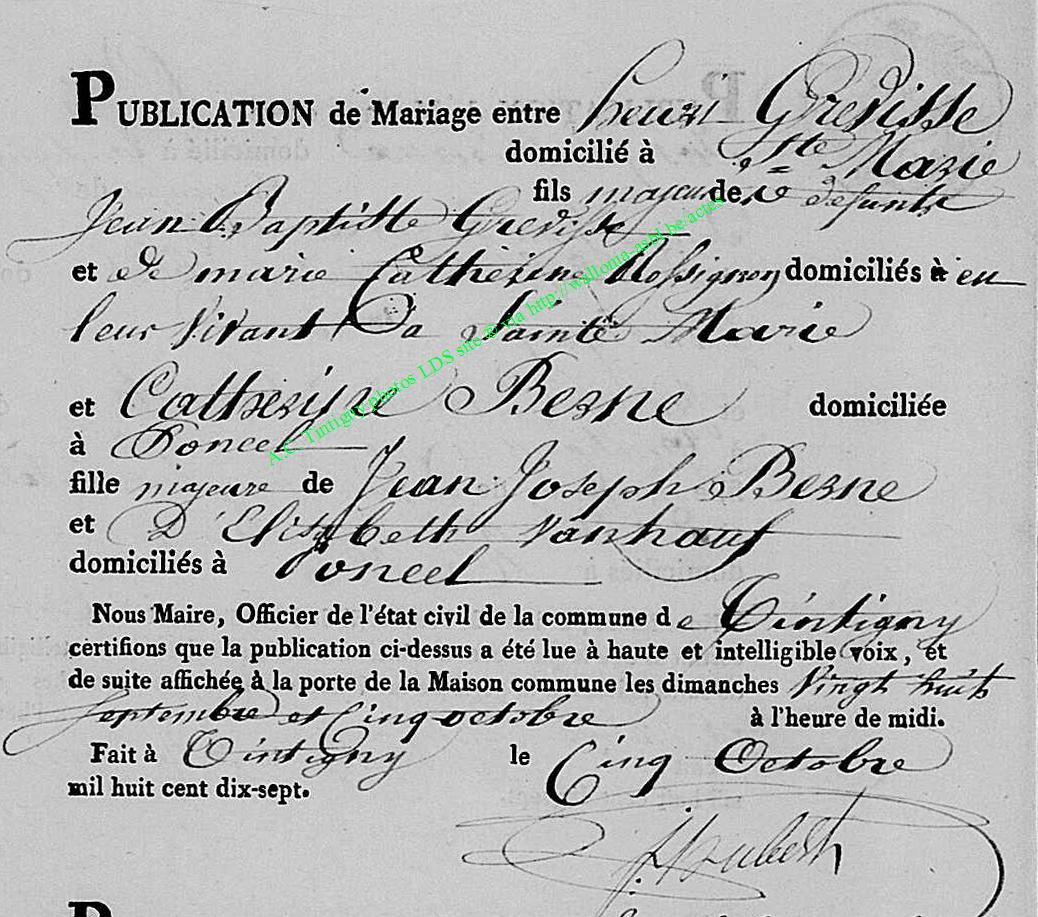 PUBLICATION de Mariage entre henri Grevisse
domicilié à Ste Marie
fils majeur de defunts
Jean Baptiste Grevisse
et de marie Catherine Rossignon domiciliés à en
leur vivant a Sainte Marie
et Catherine Berne domiciliée
à Poncel
fille majeure de Jean Joseph Berne
et D'Elisabeth Vanhauf
domiciliés à Poncel
Nous Maire, Officier de l'état civil de la commune de Tintigny
certifions que la publication ci-dessus a été lue à haute et intelligible voix, et
de suite affichée à la porte de la Maison commune les dimanches Vingt huit
Septembre et Cinq octobre à l'heure de midi.
Fait à Tintigny le Cinq Octobre
mil huit cent dix-sept.
Hubert
A.C. Tintigny photos LDS site © via http://wallonia-asbl.be/actes
P